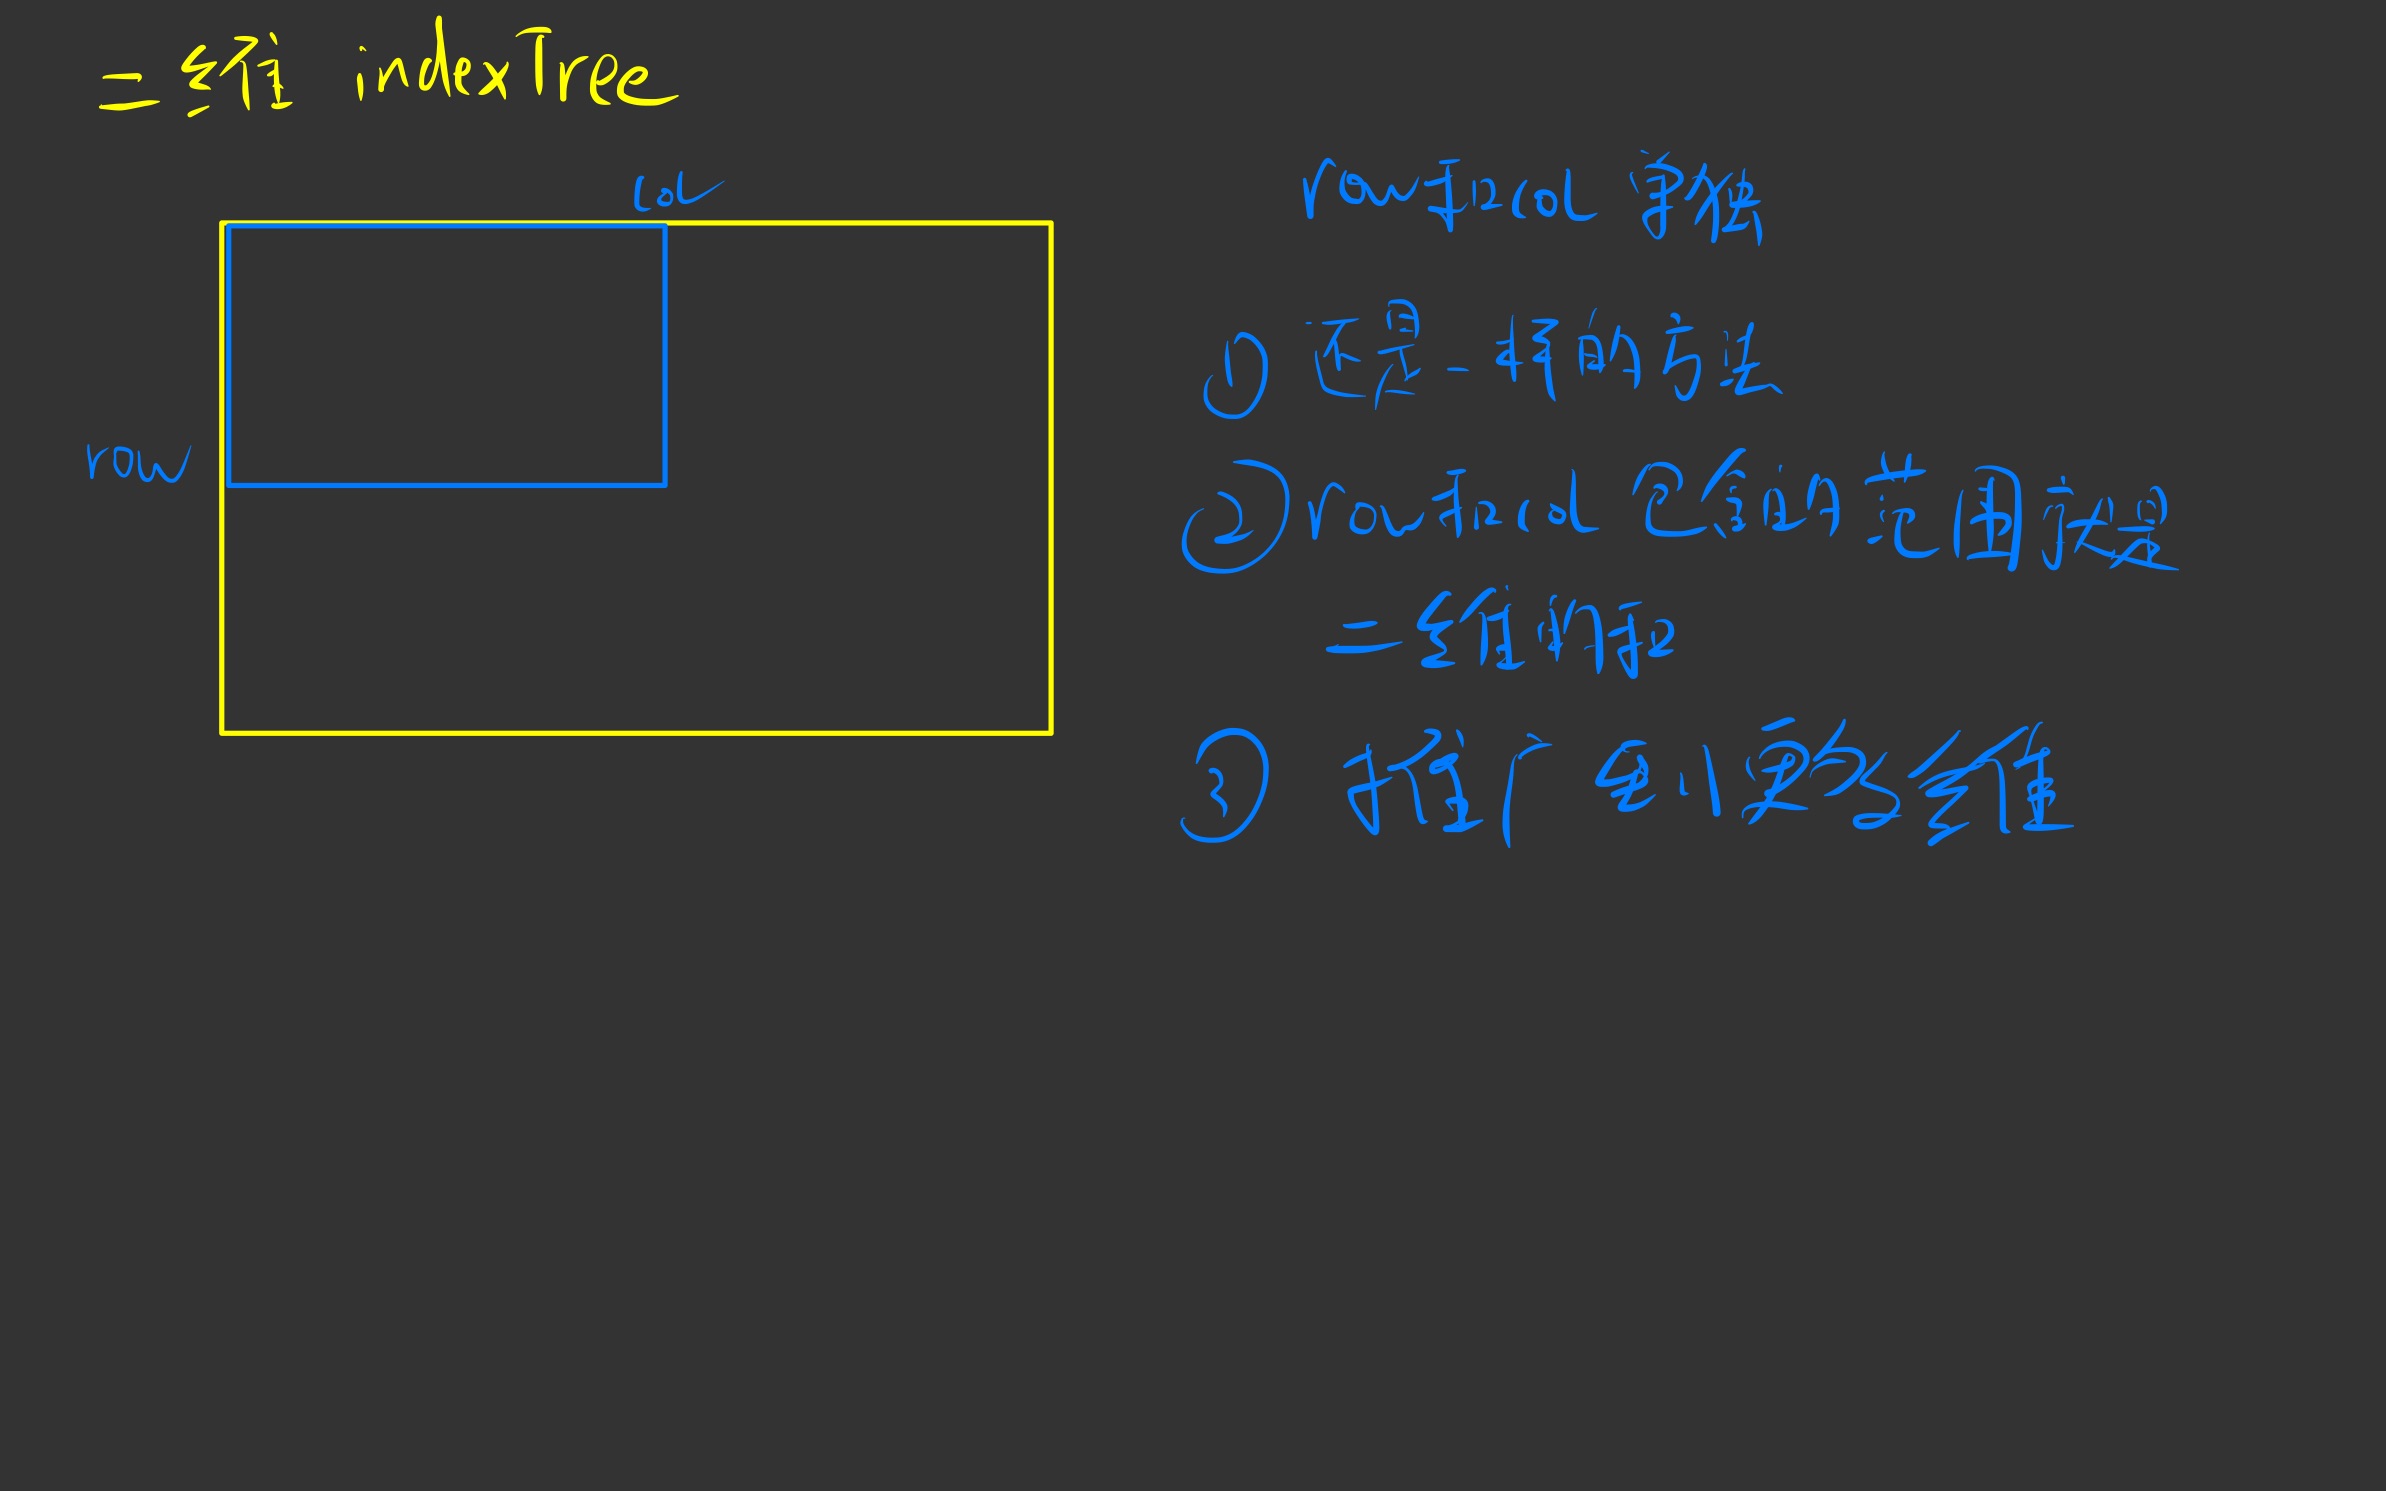 二维 indexTree
col
row
row和col 单独
① 还是一样的方法
② row和col 包含的范围应是
二维的和
③ 可推广到更多维